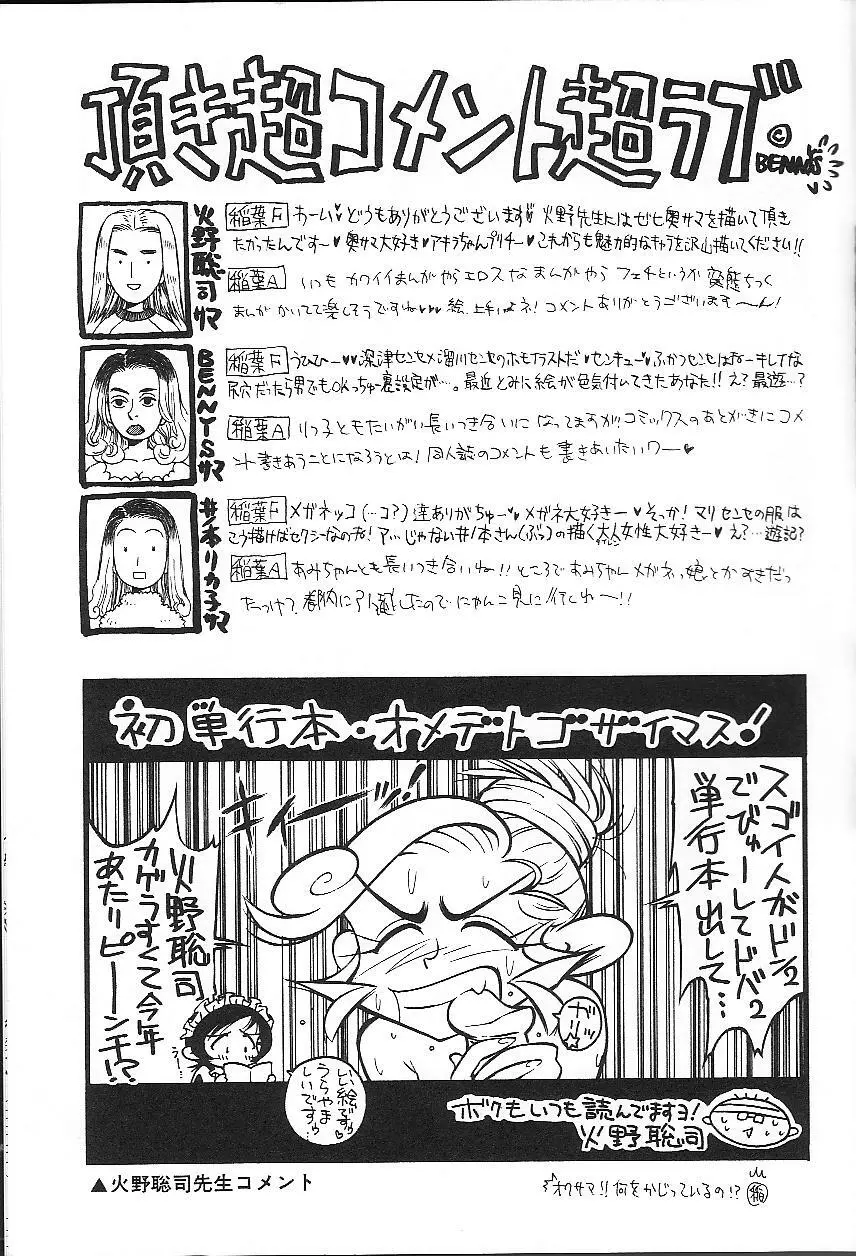 頂き超コメント超ラブ
© BENNYS
火野聡司サマ
稲葉F おーい♥どうもありがとうございます♥火野先生にはぜヒ奥サマを描いて頂き
たかったんです〜♥奥サマ大好き♥アキラちゃんプリチー♥これからも魅力的なキャラを沢山描いてください!!
稲葉A いつもカワイイまんがやらエロスなまんがやらフェチというか変態ちっく
まんがかいてて楽しそうですね♥♥♥絵、上手いよネ!コメントありがとうございます〜ん!
BENNY'Sサマ
稲葉F うひひー♥♥深津センセ×溜川センセのホモイラストだ♥センキュー♥ふかつセンセは
尻穴だったら男でもOKっちゅー裏設定が…。最近とみに絵が色気付いてきたあなた!!え?最遊…?
稲葉A りっ子ともたいがい長いつき合いになってますが!!コミックスのあとがきにコメ
ント書きあうことになろうとは!同人誌のコメントも書きあいたいワー♥
井ノ本リカ子サマ
稲葉F メガネッコ(…コ?)達ありがちゅー♥メガネ大好きー♥そっか!マリセンセの服は
こう描けばセクシーなのね!ア…じゃない井ノ本さん(ぷっ)の描く大人女性大好きー♥え?…遊記?
稲葉A あみちゃんとも長いつき合いね!!ところであみちゃんメガネっ娘とかすきだっ
たっけ?都内に引越したのでにゃんこ見に行くわ〜!!
初単行本・オメデトゴザイマス!
スゴイ人がドン2
でびゅーしてドバ2
単行本出して…
キィーッ!
火野聡司
カゲうすくて今年
あたリピーンチ!?
ガリッ
うー…
いい絵ですゥ
うらやま
しいですゥ…
ボクもいつも読んでますヨ!
火野聡司
▲火野聡司先生コメント
オクサマ!!何をかじっているの!? 稲